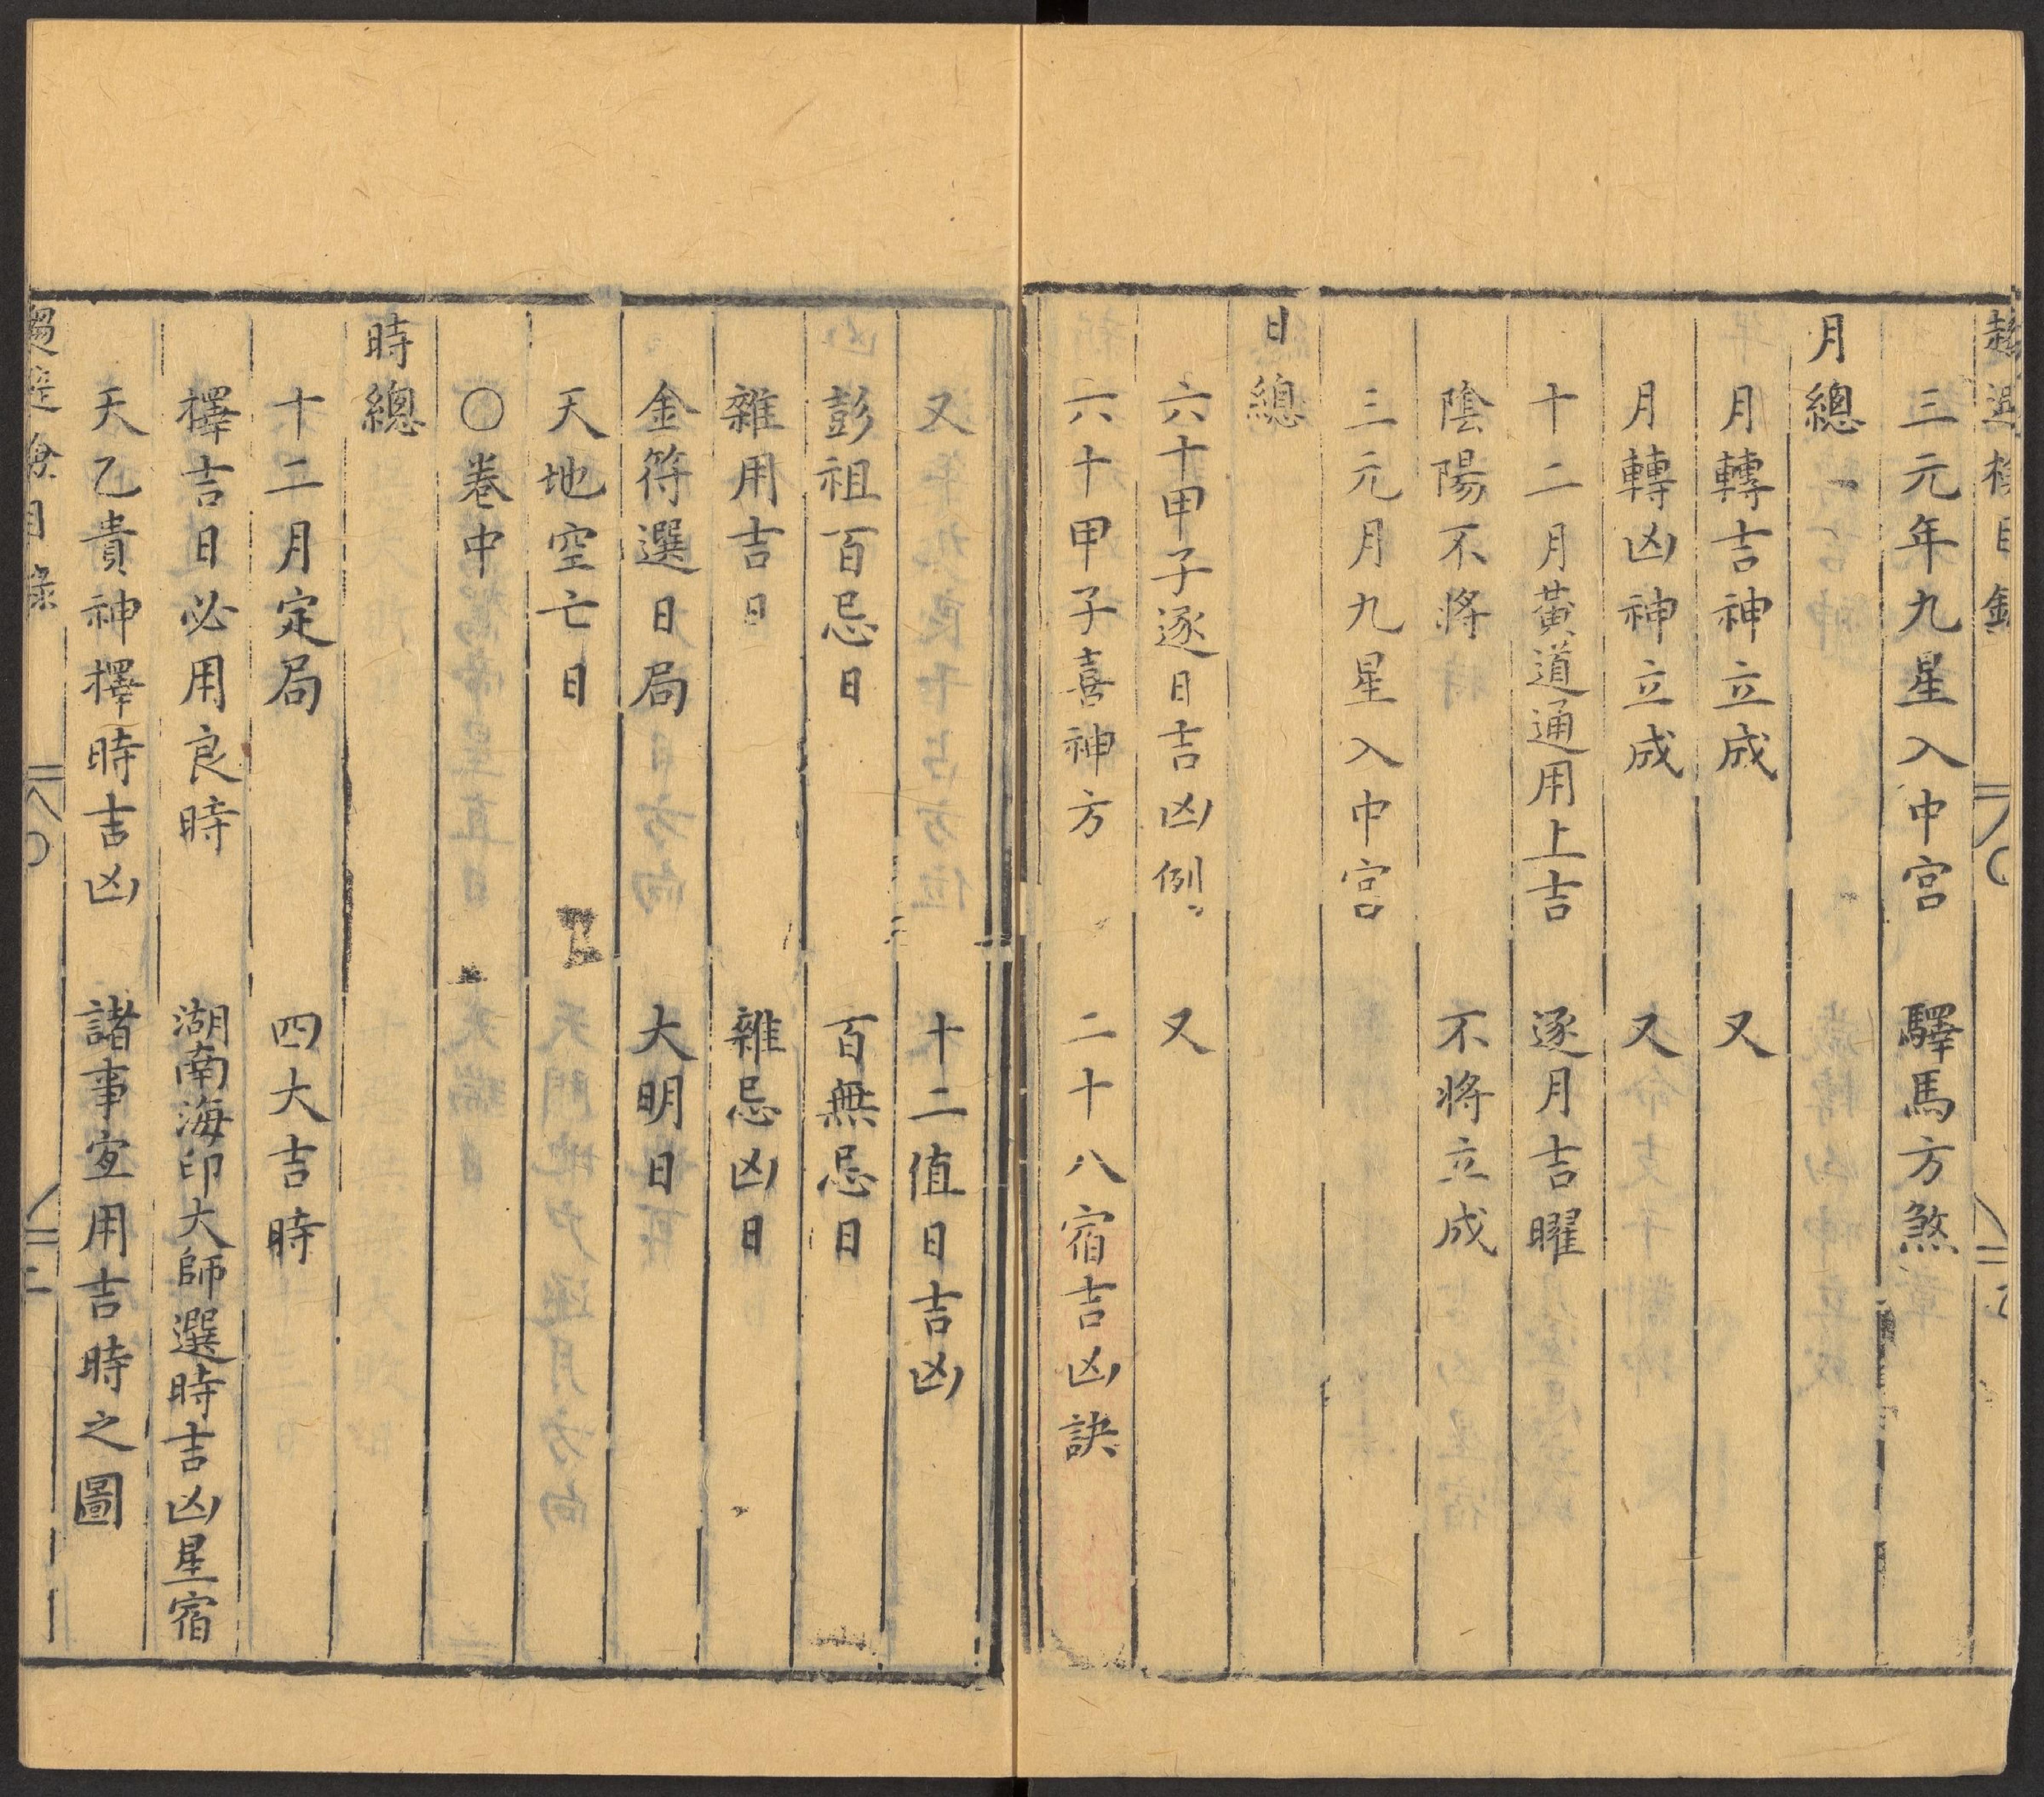 三元年九星入中宮　驛馬方煞
月總
月轉吉神立成　又
月轉凶神立成　又
十二月黃道通用上吉　逐月吉曜
陰陽不將　不將立成
三元月九星入中宮
日總
六十甲子逐日吉凶例　又
六十甲子喜神方　二十八宿吉凶訣
又　十二值日吉凶
彭祖百忌日　百無忌日
雜用吉日　雜忌凶日
金符選日局　大明日
天地空亡日
○卷中
時總
十二月定局　四大吉時
擇吉日必用良時　湖南海印大師選時吉凶星宿
天乙貴神擇時吉凶　諸事宜用吉時之圖